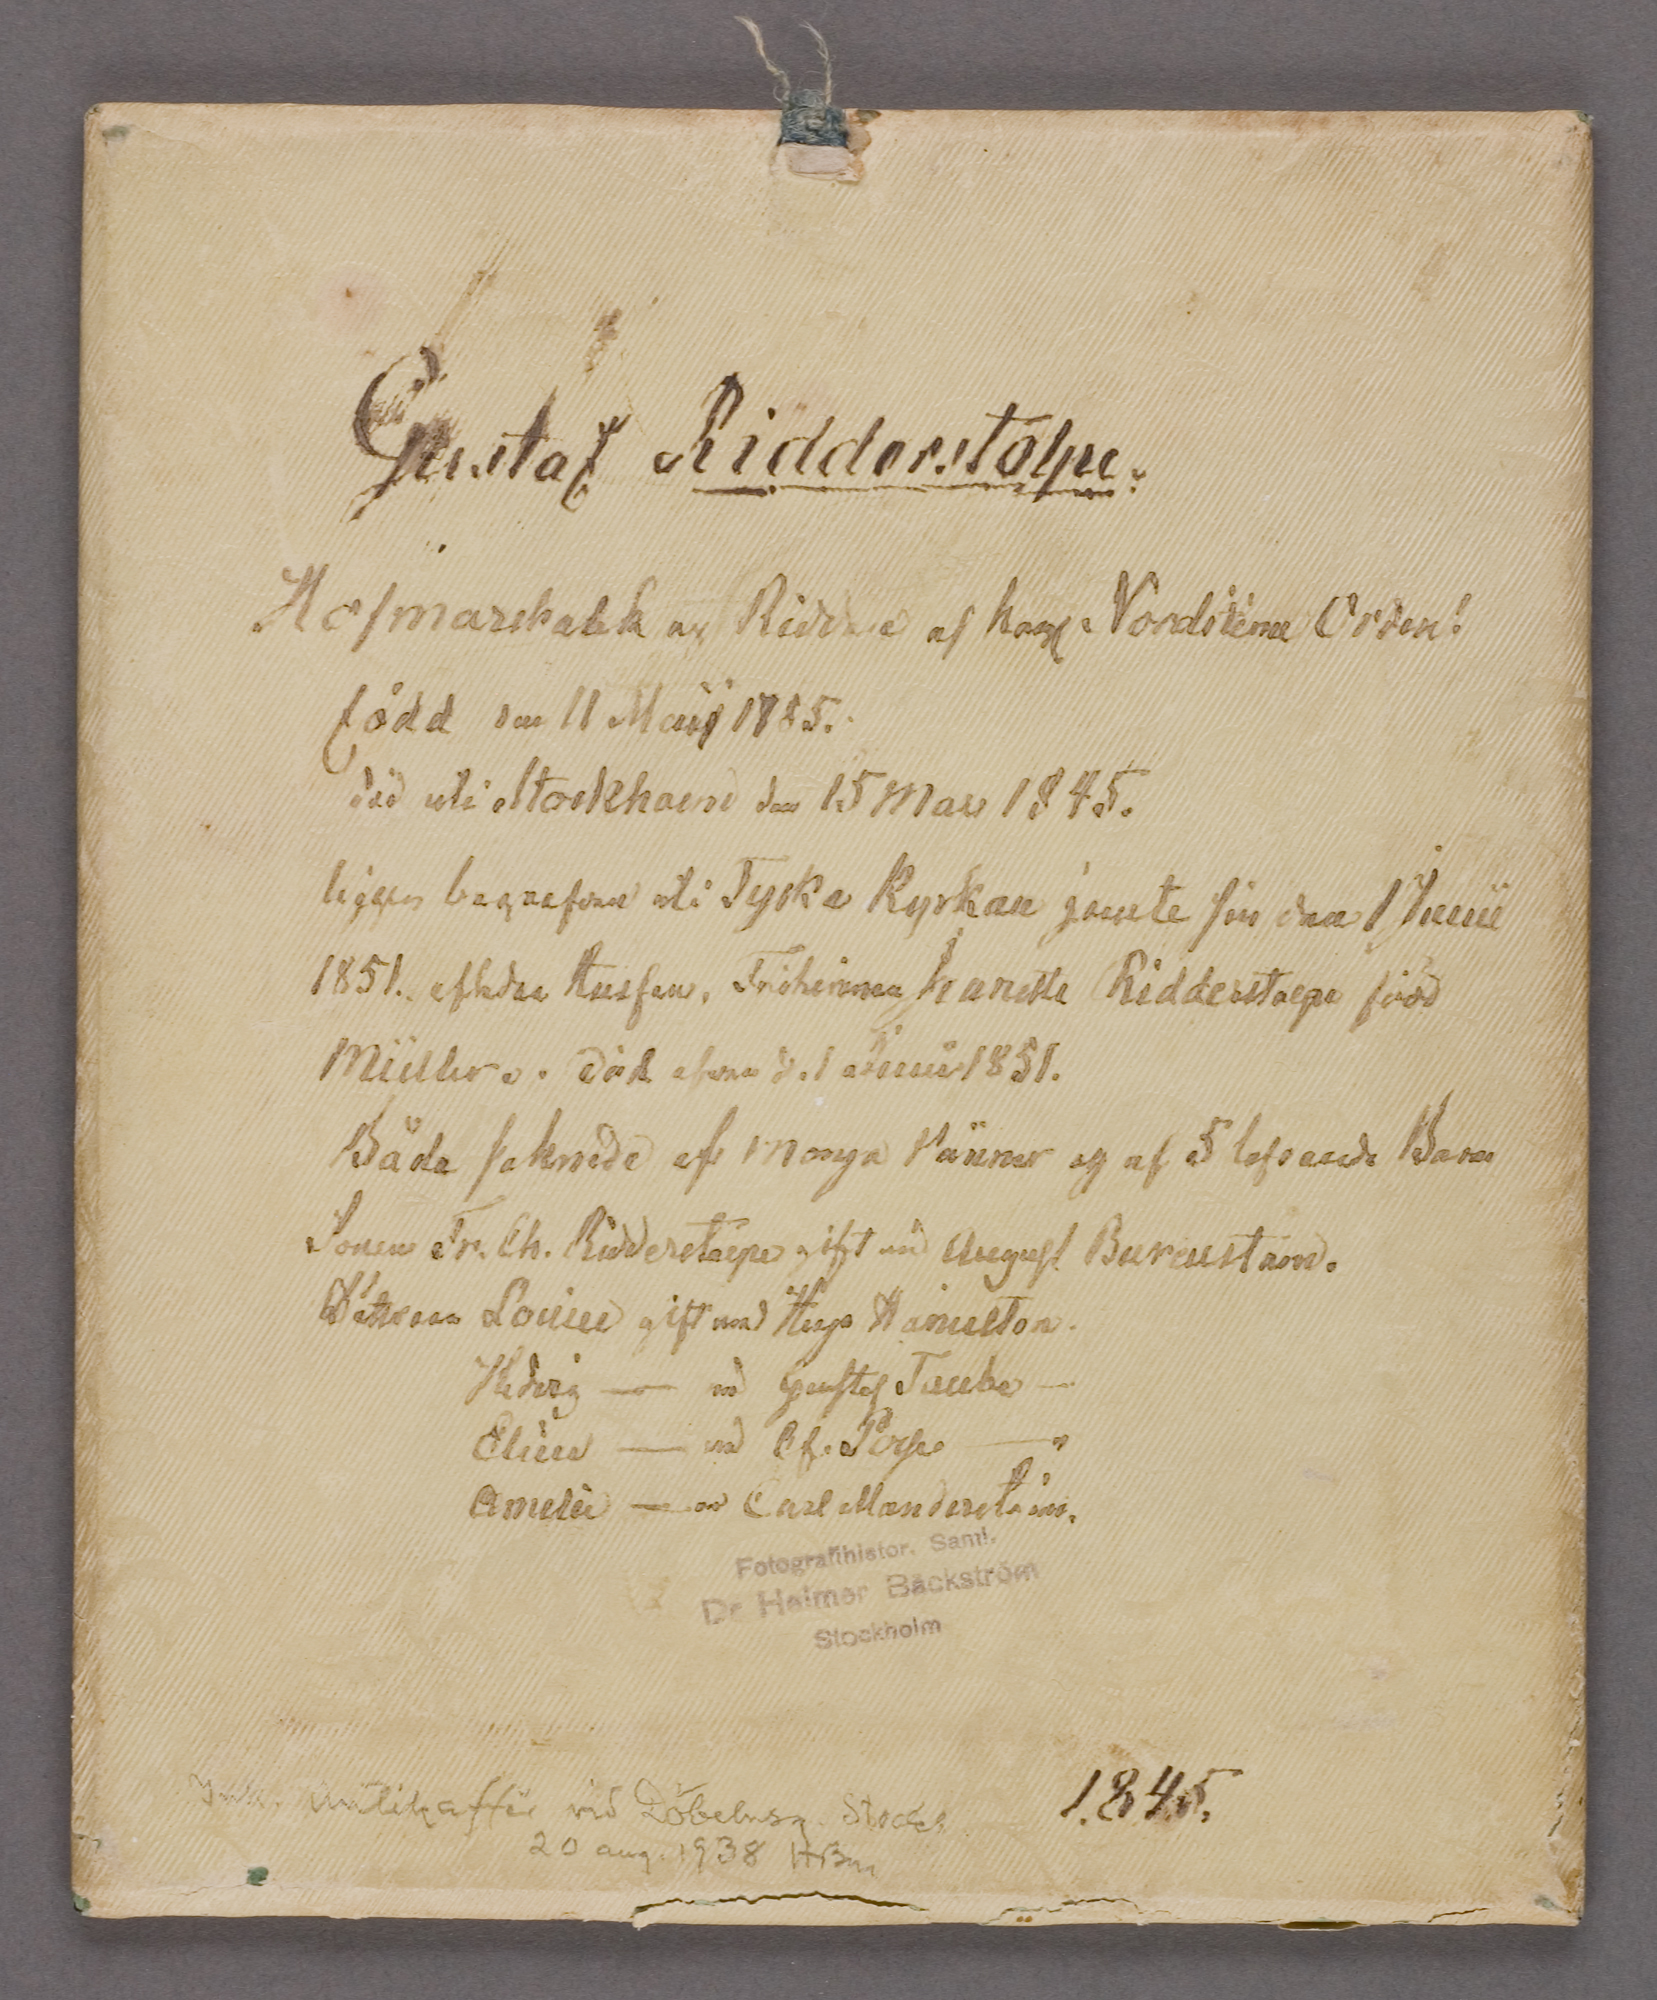 Gustaf Ridderstolpe.
Hofmarskalk og Riddare af Kongl. Nordstierne Orden!
född den 11 Maij 1785.
död uti Stockholm den 15 Mars 1845.
ligger begrafven uti Tyska Kyrkan jemte sin den 1 Junii
1851. aflidna Hustru, Friherinnan Jeanette Ridderstolpe född
Müller. död afven d. 1 Junii 1851.
Båda saknade af många Vänner og af 5 lefvande Barn
Sonen Fr. Ch. Ridderstolpe gift md August Burenstam.
Döttrarna Louise gift med Hugo Hamilton.
Hedvig — md Gustaf Taube —
Elise — md Posse —
Amelie — Carl Manderström.
Fotografihistor. Saml.
Dr Helmer Bäckström
Stockholm
1845.
Ink. Antikaffär vid Döbelnsg. Stockh.
20 aug. 1938 HBm